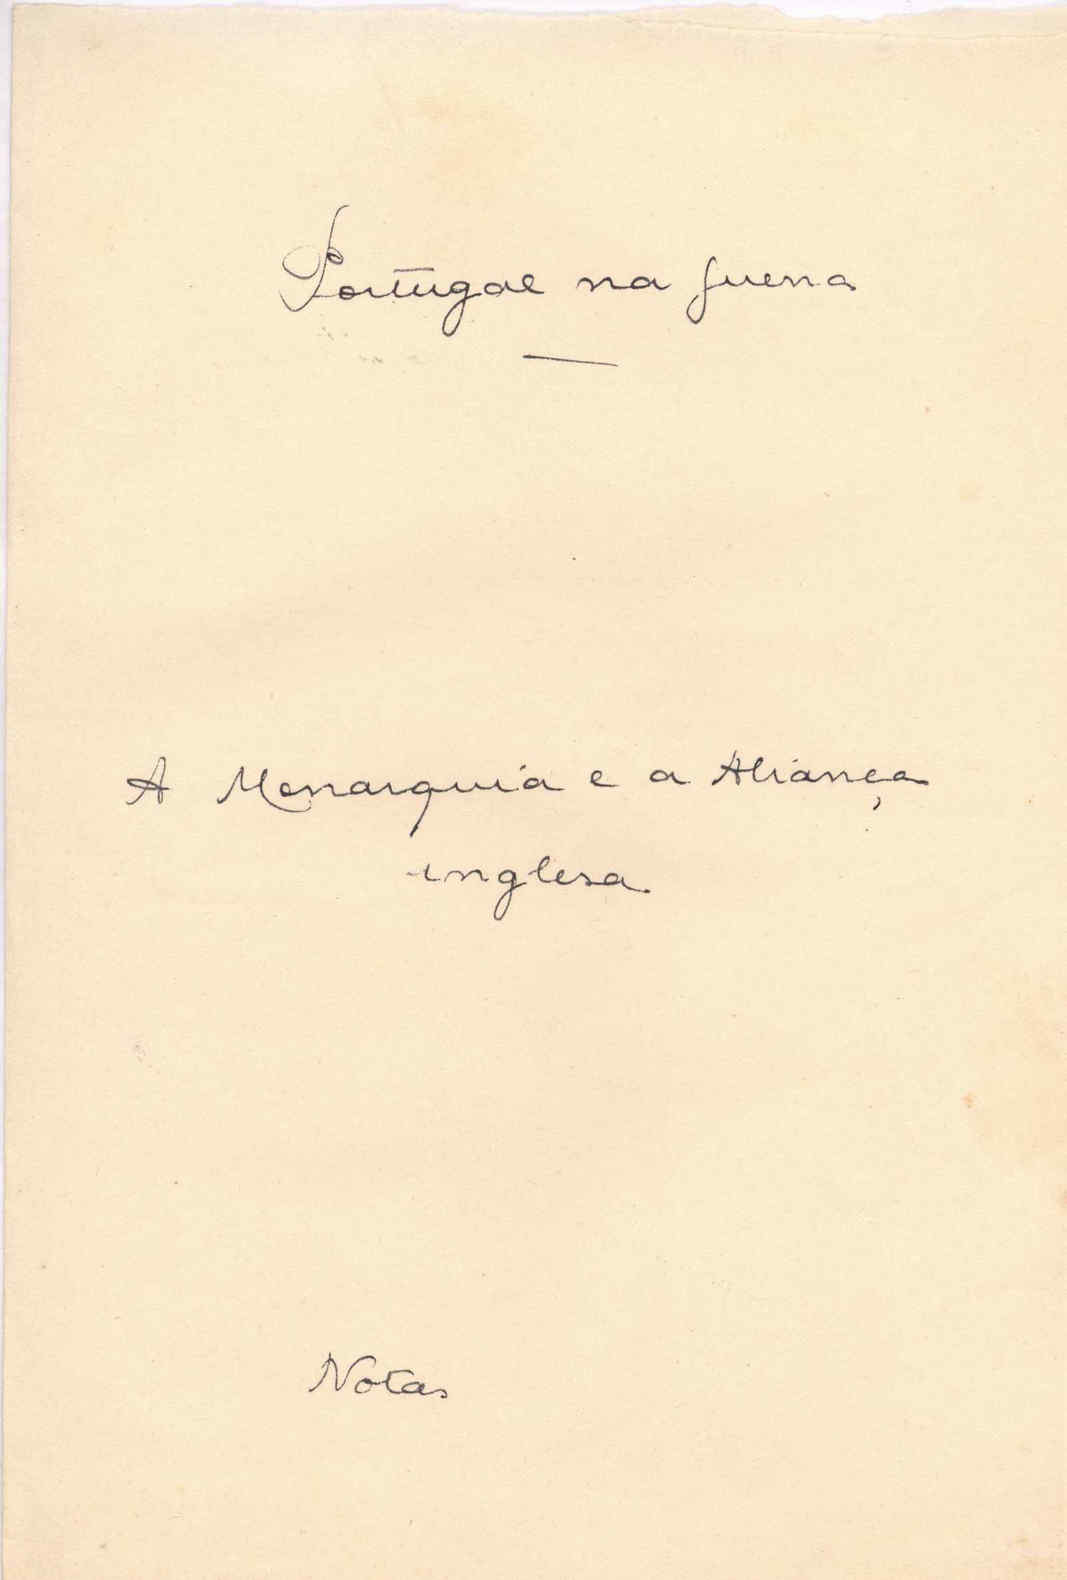 Portugal na guerra
A Monarquia e a Aliança
inglesa
Notas